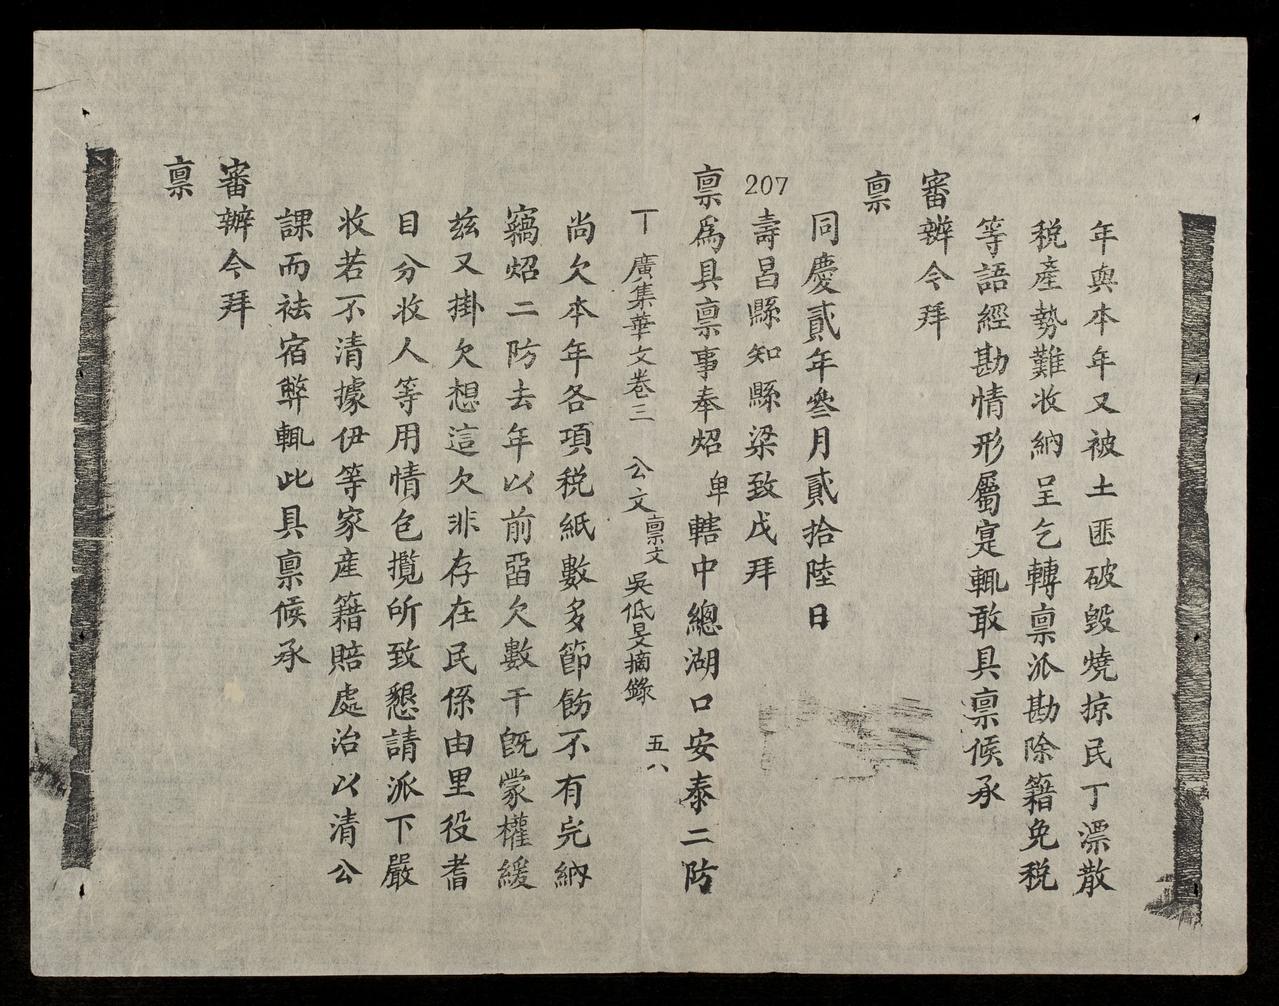 年與本年又被土匪破毀燒掠民丁漂散
税產勢難收納呈乞轉禀派勘除籍免税
等語經勘情形屬寔輒敢具禀候承
審辦今拜
禀
同慶貳年叄月貳拾陸日
207
壽昌縣知縣梁致戊拜
禀爲具禀事奉炤卑轄中總湖口安泰二防
丁 廣集華文卷三 公文 禀文 吳低旻摘錄 五八
尚欠本年各項税紙數多節飭不有完納
竊炤二防去年以前畱欠數干旣蒙權緩
兹又掛欠想這欠非存在民係由里役耆
目分收人等用情包攬所致懇請派下嚴
收若不清據伊等家産籍賠處治以清公
課而祛宿弊輒此具禀候承
審辦今拜
禀